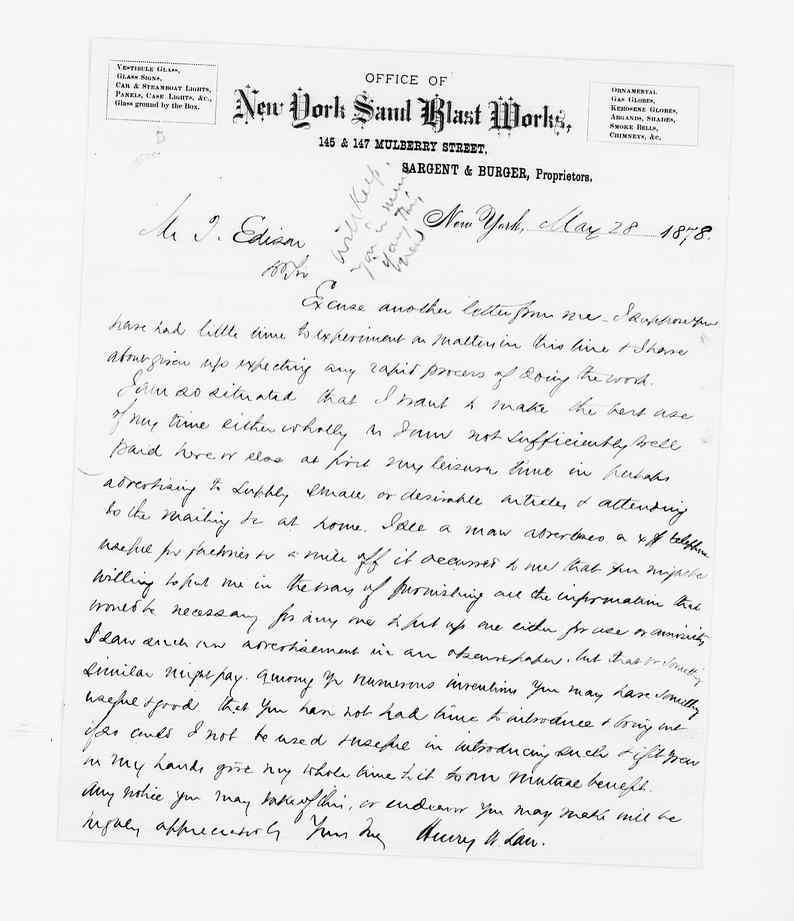 VESTIBULE GLASS,
GLASS SIGNS,
CAR & STEAMBOAT LIGHTS,
PANELS, CASE LIGHTS, &C.,
Glass ground by the Box.
OFFICE OF
New York Sand Blast Works,
145 & 147 MULBERRY STREET,
SARGENT & BURGER, Proprietors.
ORNAMENTAL
GAS GLOBES,
KEROSENE GLOBES,
ARGANDS, SHADES,
SMOKE BELLS,
CHIMNEYS, &C.
will keep
you in mind
if any thing
New York, May 28 1878.
Mr T. Edison
Excuse another letter from me – I suppose you
have had little time to experiment on matters in this line & I have
about given up expecting any rapid process of doing the work.
I am so situated that I want to make the best use
of my time either wholly as I am not sufficiently well
paid here or else at first my leisure time in perhaps
advertising to supply small or desirable articles & attending
to the mailing &c at home. I see a man advertises a telephone
useful for factories or a mile off it occurred to me that you might be
willing to put me in the way of furnishing all the information that
would be necessary for any one to put up one either for use or curiosity
I saw such an advertisement in an obscure paper, but that or something
similar might pay. Among yr numerous inventions you may have something
useful & good that you have not had time to introduce & bring out
if so could I not be used & useful in introducing such & if left
in my hands give my whole time to it to our mutual benefit.
Any notice you may take of this, or endeavor you may make will be
highly appreciated Yours Truly Henry W. Law.